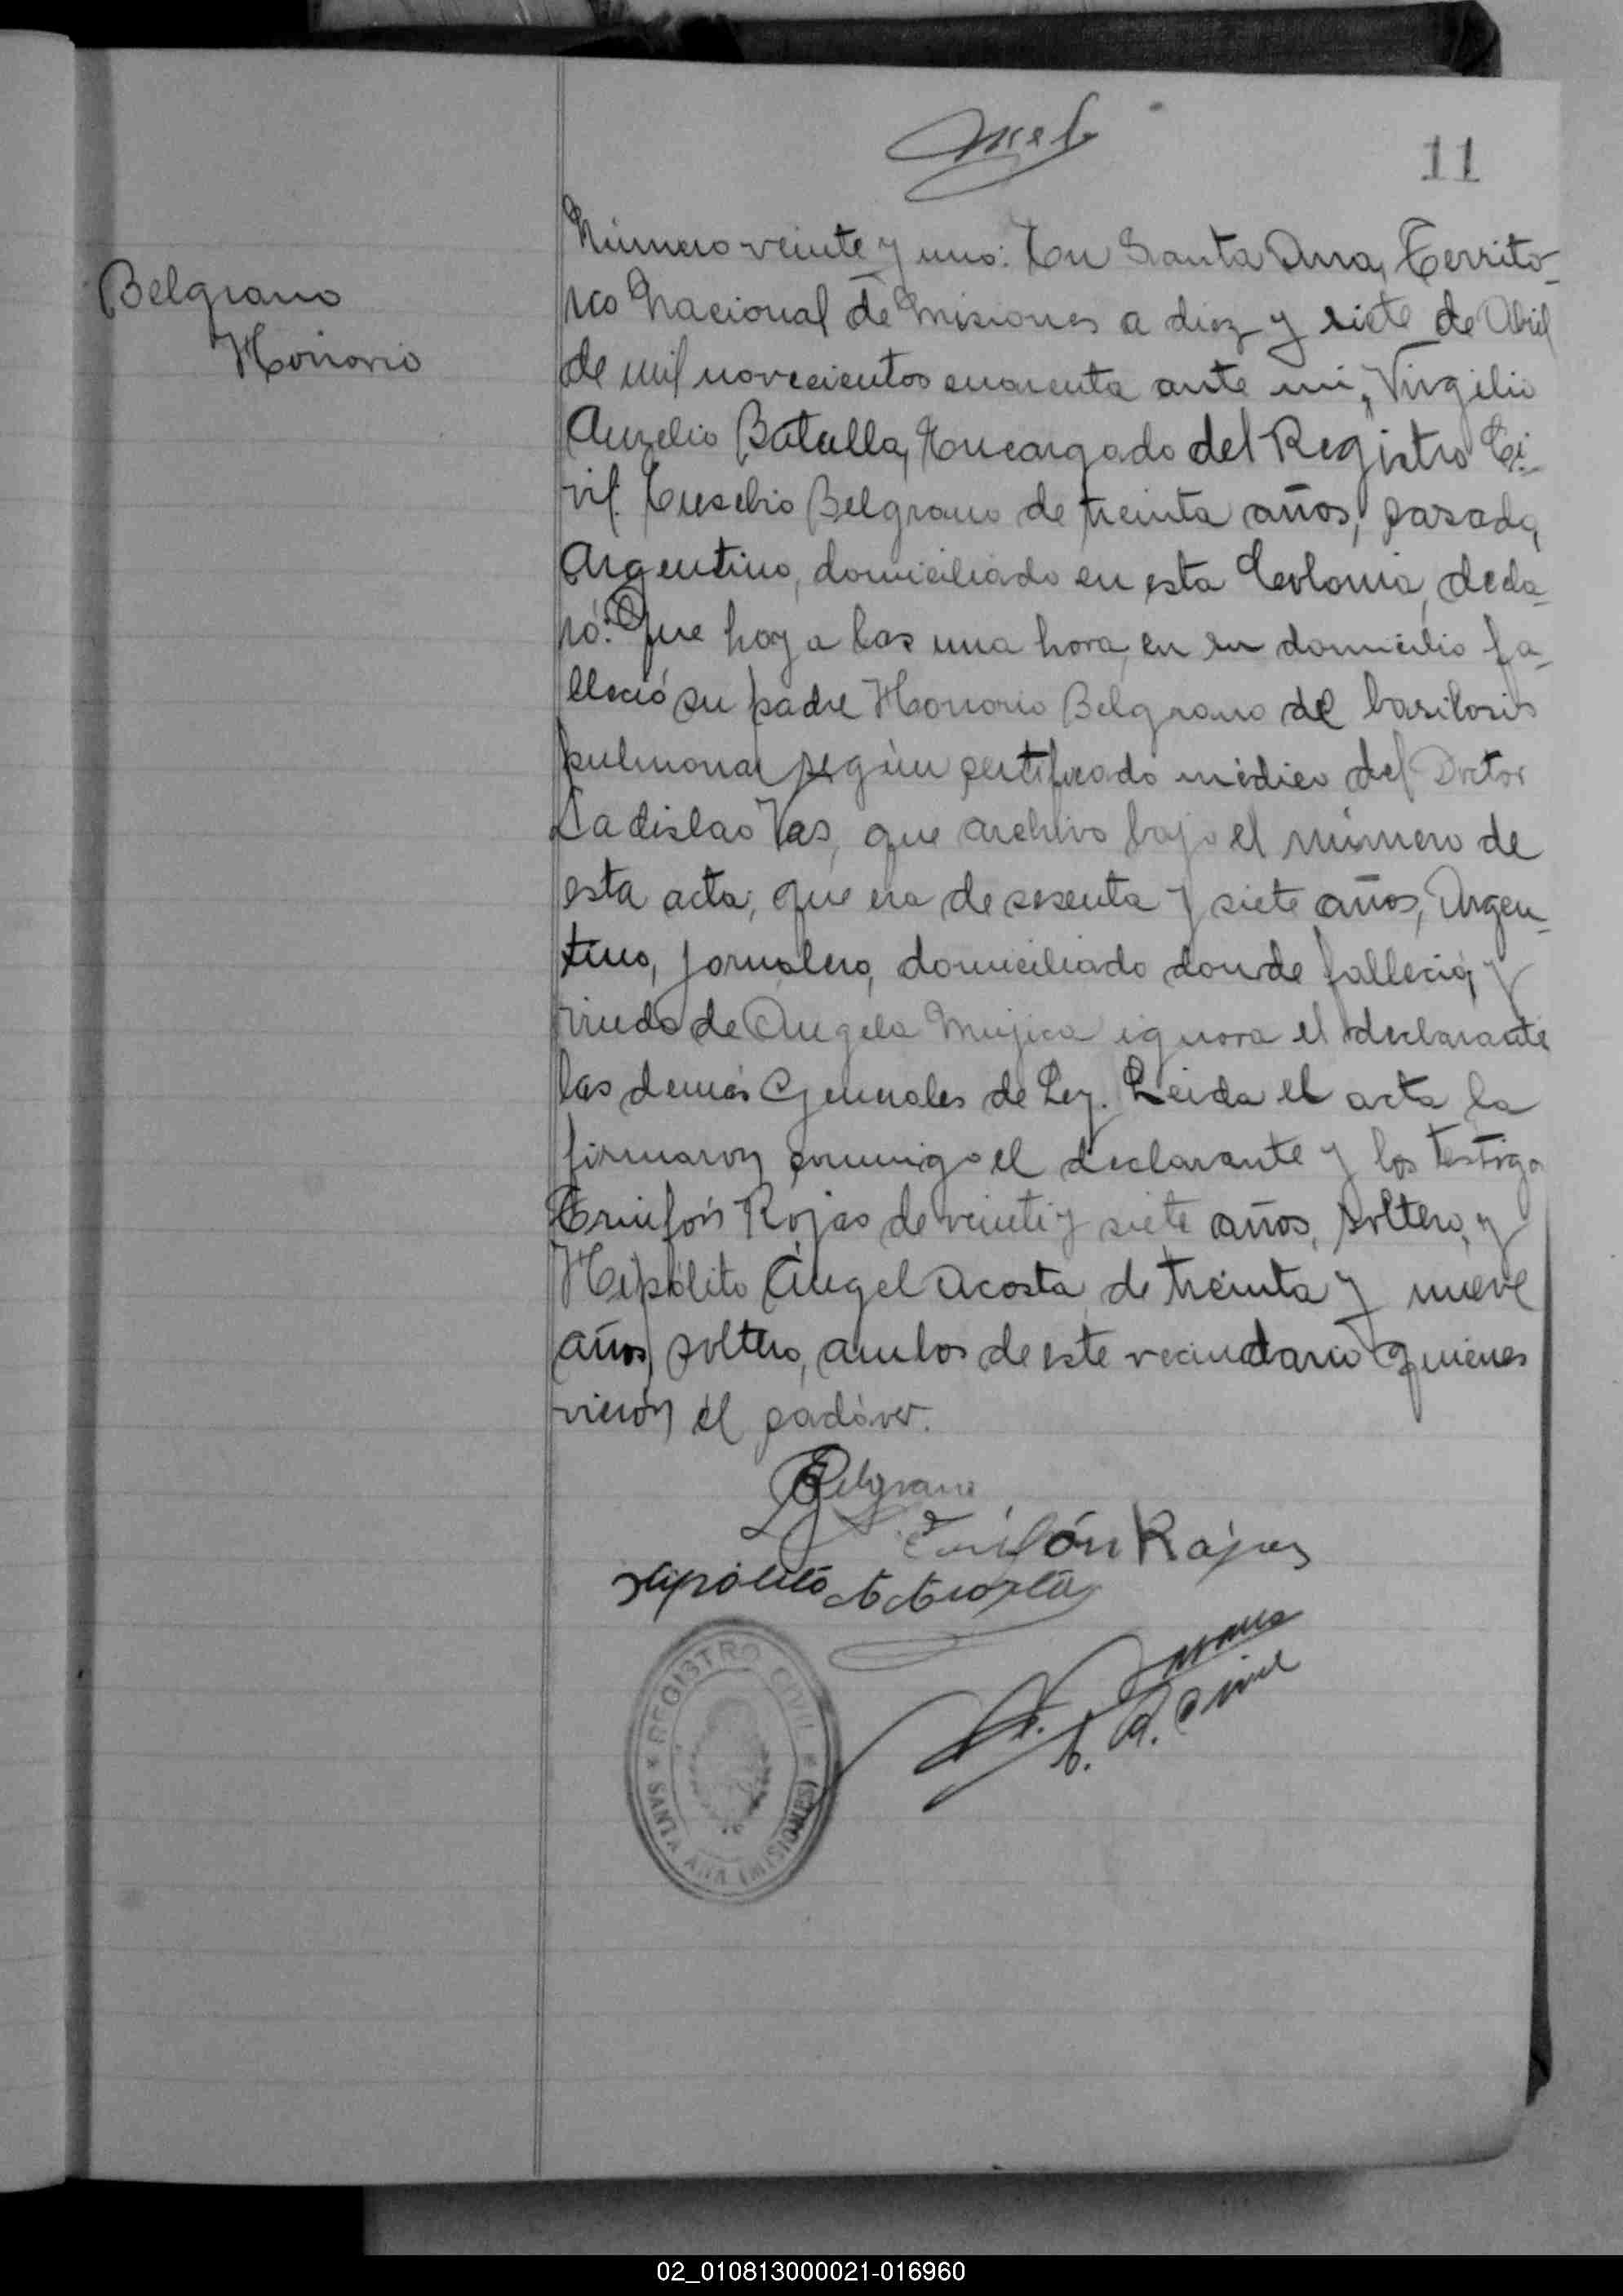 11
Belgrano
Honorio
Número veinte y uno: En Santa Ana, Territo-
rio Nacional de Misiones a diez y siete de Abril
de mil novecientos cuarenta ante mi, Virgilio
Aurelio Batalla, Encargado del Registro Ci-
vil. Eusebio Belgrano de treinta años, casado,
Argentino, domiciliado en esta Colonia, decla-
ró: Que hoy a las una hora, en su domicilio fa-
lleció su padre Honorio Belgrano de basilosis
pulmonar según certificado médico del Doctor
Ladislao Vas, que archivo bajo el número de
esta acta; que era de sesenta y siete años, Argen-
tino, jornalero, domiciliado donde falleció, y
viudo de Angela Mujica ignora el declarante
las demás Generales de Ley. Leida el acta la
firmaron conmigo el declarante y los testigo
Trinfón Rojas de veinti y siete años, soltero, y
Hipólito Ángel Acosta, de treinta y nueve
años, soltero, ambos de este vecindario quienes
vierón el cadáver.
Belgrano
Trifón Rojas
Hipólito A Acosta
REGISTRO CIVIL
SANTA ANA (MISIONES)
02_010813000021-016960